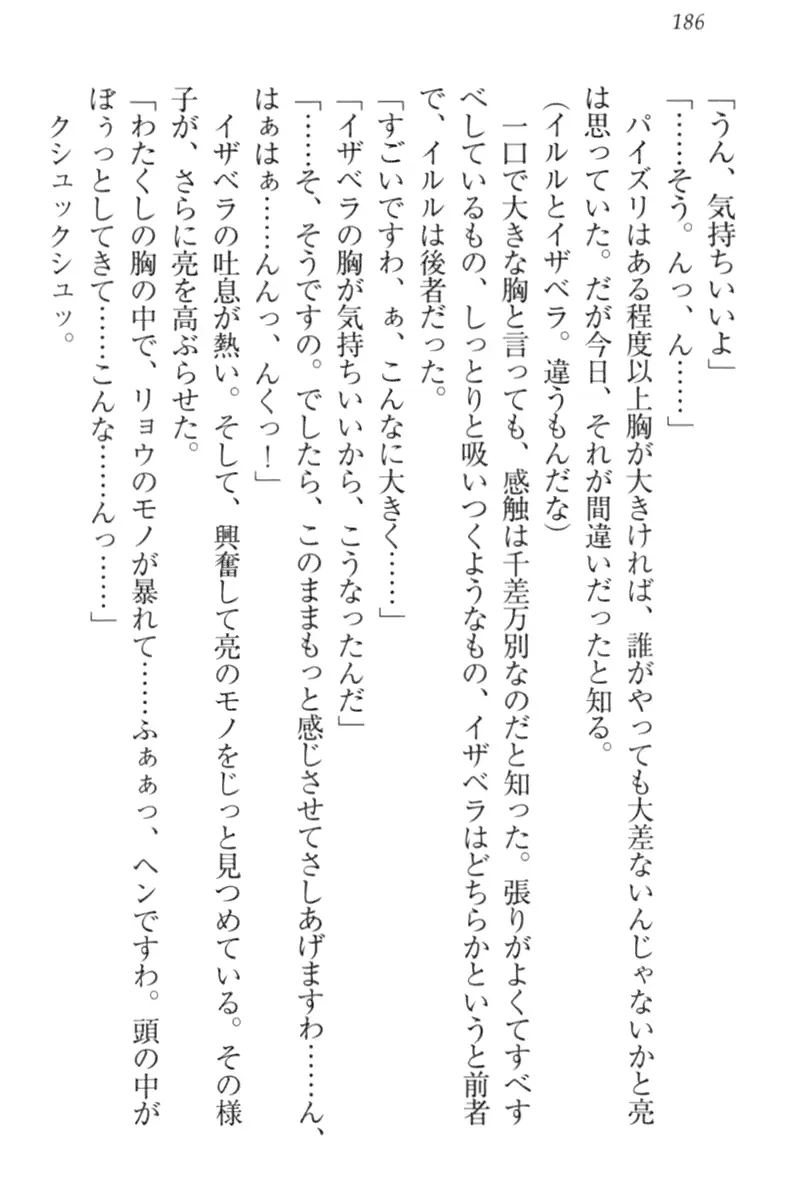 186
「うん、気持ちいいよ」
「……そう。んっ、ん……」
　パイズリはある程度以上胸が大きければ、誰がやっても大差ないんじゃないかと亮
は思っていた。だが今日、それが間違いだったと知る。
(イルルとイザベラ。違うもんだな)
　一口で大きな胸と言っても、感触は千差万別なのだと知った。張りがよくてすべす
べしているもの、しっとりと吸いつくようなもの、イザベラはどちらかというと前者
で、イルルは後者だった。
「すごいですわ、ぁ、こんなに大きく……」
「イザベラの胸が気持ちいいから、こうなったんだ」
「……そ、そうですの。でしたら、このままもっと感じさせてさしあげますわ……ん、
はぁはぁ……んんっ、んくっ！」
　イザベラの吐息が熱い。そして、興奮して亮のモノをじっと見つめている。その様
子が、さらに亮を高ぶらせた。
「わたくしの胸の中で、リョウのモノが暴れて……ふぁぁっ、ヘンですわ。頭の中が
ぽぅっとしてきて……こんな……んっ……」
　クシュックシュッ。